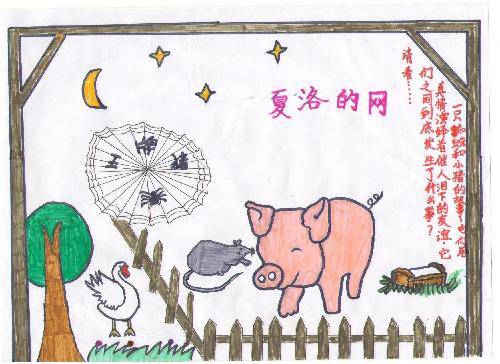 夏洛的网
一只蜘蛛和小猪的故事,它们用
真情演绎着催人泪下的友谊.它
们之间到底发生了什么事？
请看……
王